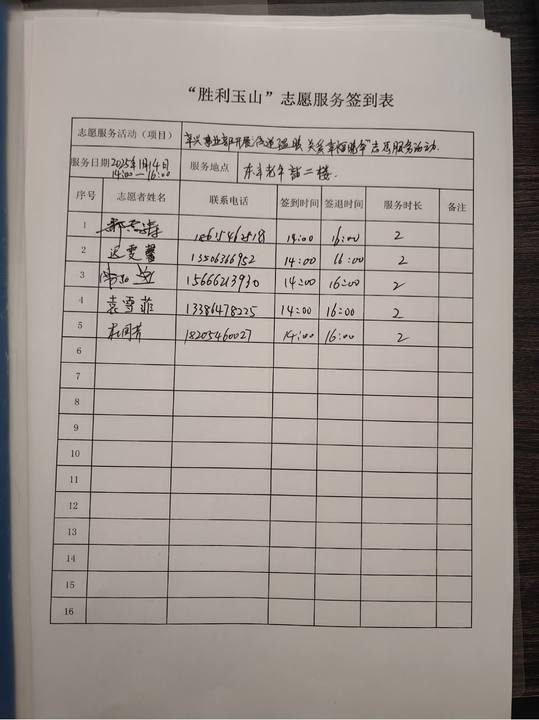 “胜利玉山”志愿服务签到表
志愿服务活动（项目） 事业部开展“传递温暖 关爱幸福晚年”志愿服务活动.
服务日期 2025年1月14日 14:00—16:00 服务地点 老年 二楼.
序号 志愿者姓名 联系电话 签到时间 签退时间 服务时长 备注
1 14:00 16:00 2
2 迟雯馨 13506366952 14:00 16:00 2
3 15666213930 14:00 16:00 2
4 袁雪菲 13386478225 14:00 16:00 2
5 18205460027 14:00 16:00 2
6
7
8
9
10
11
12
13
14
15
16